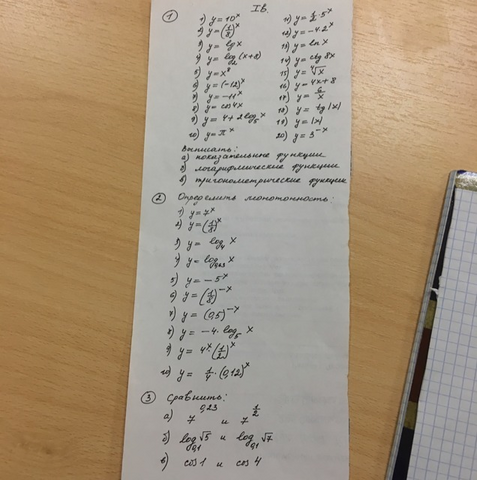 I в.
① 1) y = 10^x
2) y = (1/3)^x
3) y = lg x
4) y = log_2 (x+8)
5) y = x^8
6) y = (-12)^x
7) y = -11^x
8) y = cos 4x
9) y = 4 + 2 log_5 x
10) y = π^x
11) y = 1/2 · 5^x
12) y = -4 · 2^x
13) y = ln x
14) y = ctg 8x
15) y = ∜x
16) y = 4x + 8
17) y = 6/x
18) y = tg |x|
19) y = |x|
20) y = 3^-x
Выписать:
а) показательные функции
б) логарифмические функции
в) тригонометрические функции
② Определить монотонность:
1) y = 7^x
2) y = (1/3)^x
3) y = log_4 x
4) y = log_0,23 x
5) y = -5^x
6) y = (1/3)^-x
7) y = (0,5)^-x
8) y = -4 · log_5 x
9) y = 4^x · (1/2)^x
10) y = 1/4 · (0,12)^x
③ Сравнить:
а) 7^0,23 и 7^1/2
б) log_0,1 √5 и log_0,1 √7
в) cos 1 и cos 4